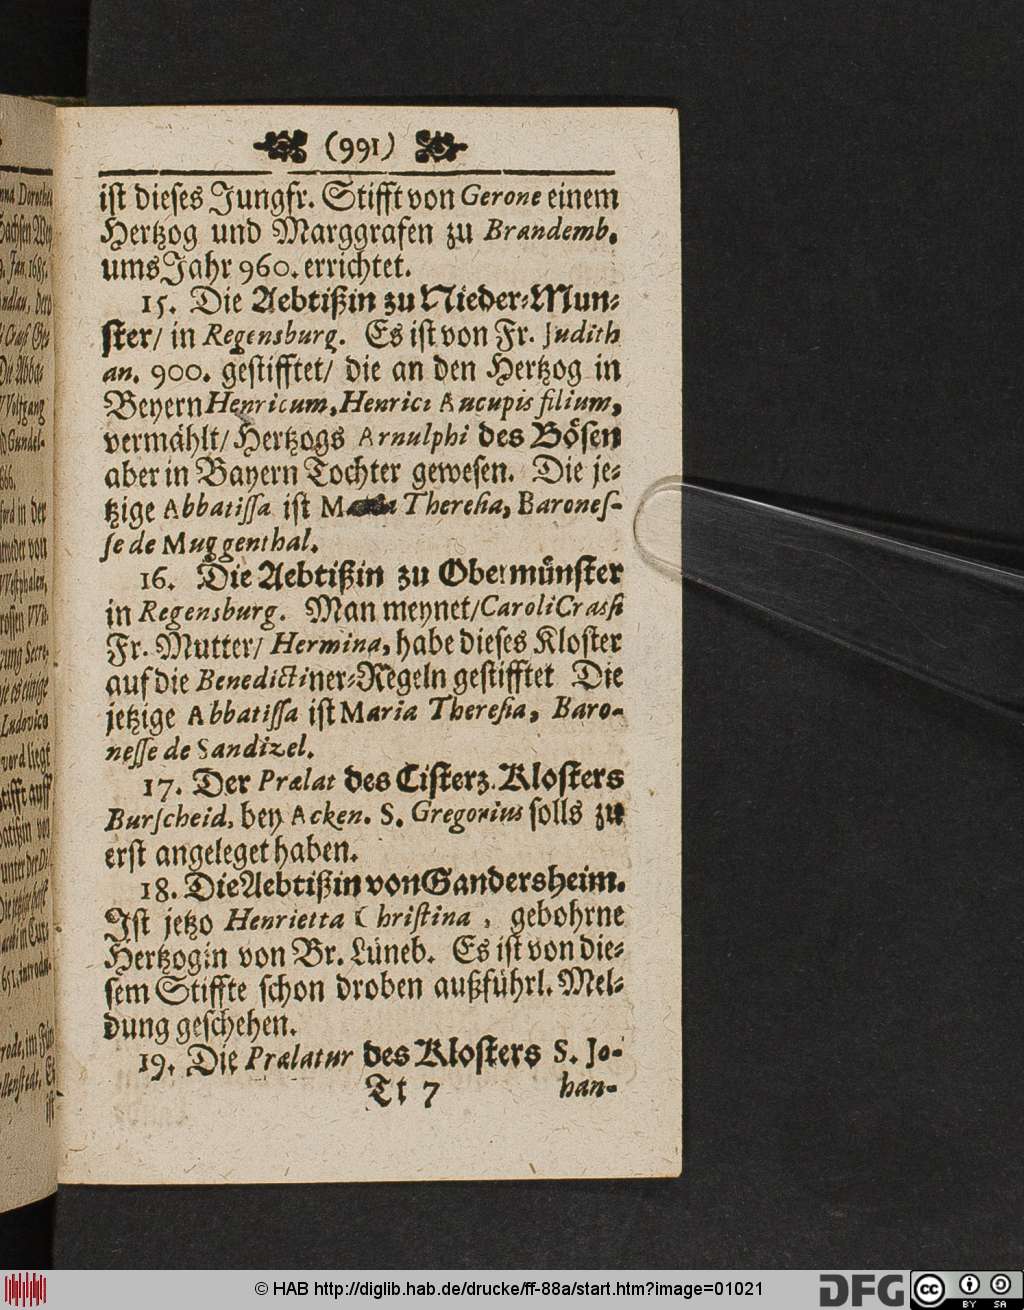 (991)
ist dieses Jungfr. Stifft von Gerone einem
Hertzog und Marggrafen zu Brandemb.
ums Jahr 960. errichtet.
15. Die Aebtißin zu Nieder-Mun-
ster/ in Regensburg. Es ist von Fr. Judith
an. 900. gestifftet/ die an den Hertzog in
Beyern Henricum, Henrici Aucupis filium,
vermählt/ Hertzogs Arnulphi des Bösen
aber in Bayern Tochter gewesen. Die je-
tzige Abbatissa ist Theresia, Barones-
se de Muggenthal.
16. Die Aebtißin zu Obermünster
in Regensburg. Man meynet/ Caroli Crassi
Fr. Mutter/ Hermina, habe dieses Kloster
auf die Benedictiner-Regeln gestifftet Die
jetzige Abbatissa ist Maria Theresia, Baro-
nesse de Sandizel.
17. Der Prælat des Cisterz. Klosters
Burscheid, bey Acken. S. Gregorius solls zu
erst angeleget haben.
18. Die Aebtißin von Gandersheim.
Ist jetzo Henrietta Christina, gebohrne
Hertzogin von Br. Lüneb. Es ist von die-
sem Stiffte schon droben außführl. Mel-
dung geschehen.
19. Die Prælatur des Klosters S. Jo-
Tt 7 han-
© HAB http://diglib.hab.de/drucke/ff-88a/start.htm?image=01021
DFG
cc
BY SA